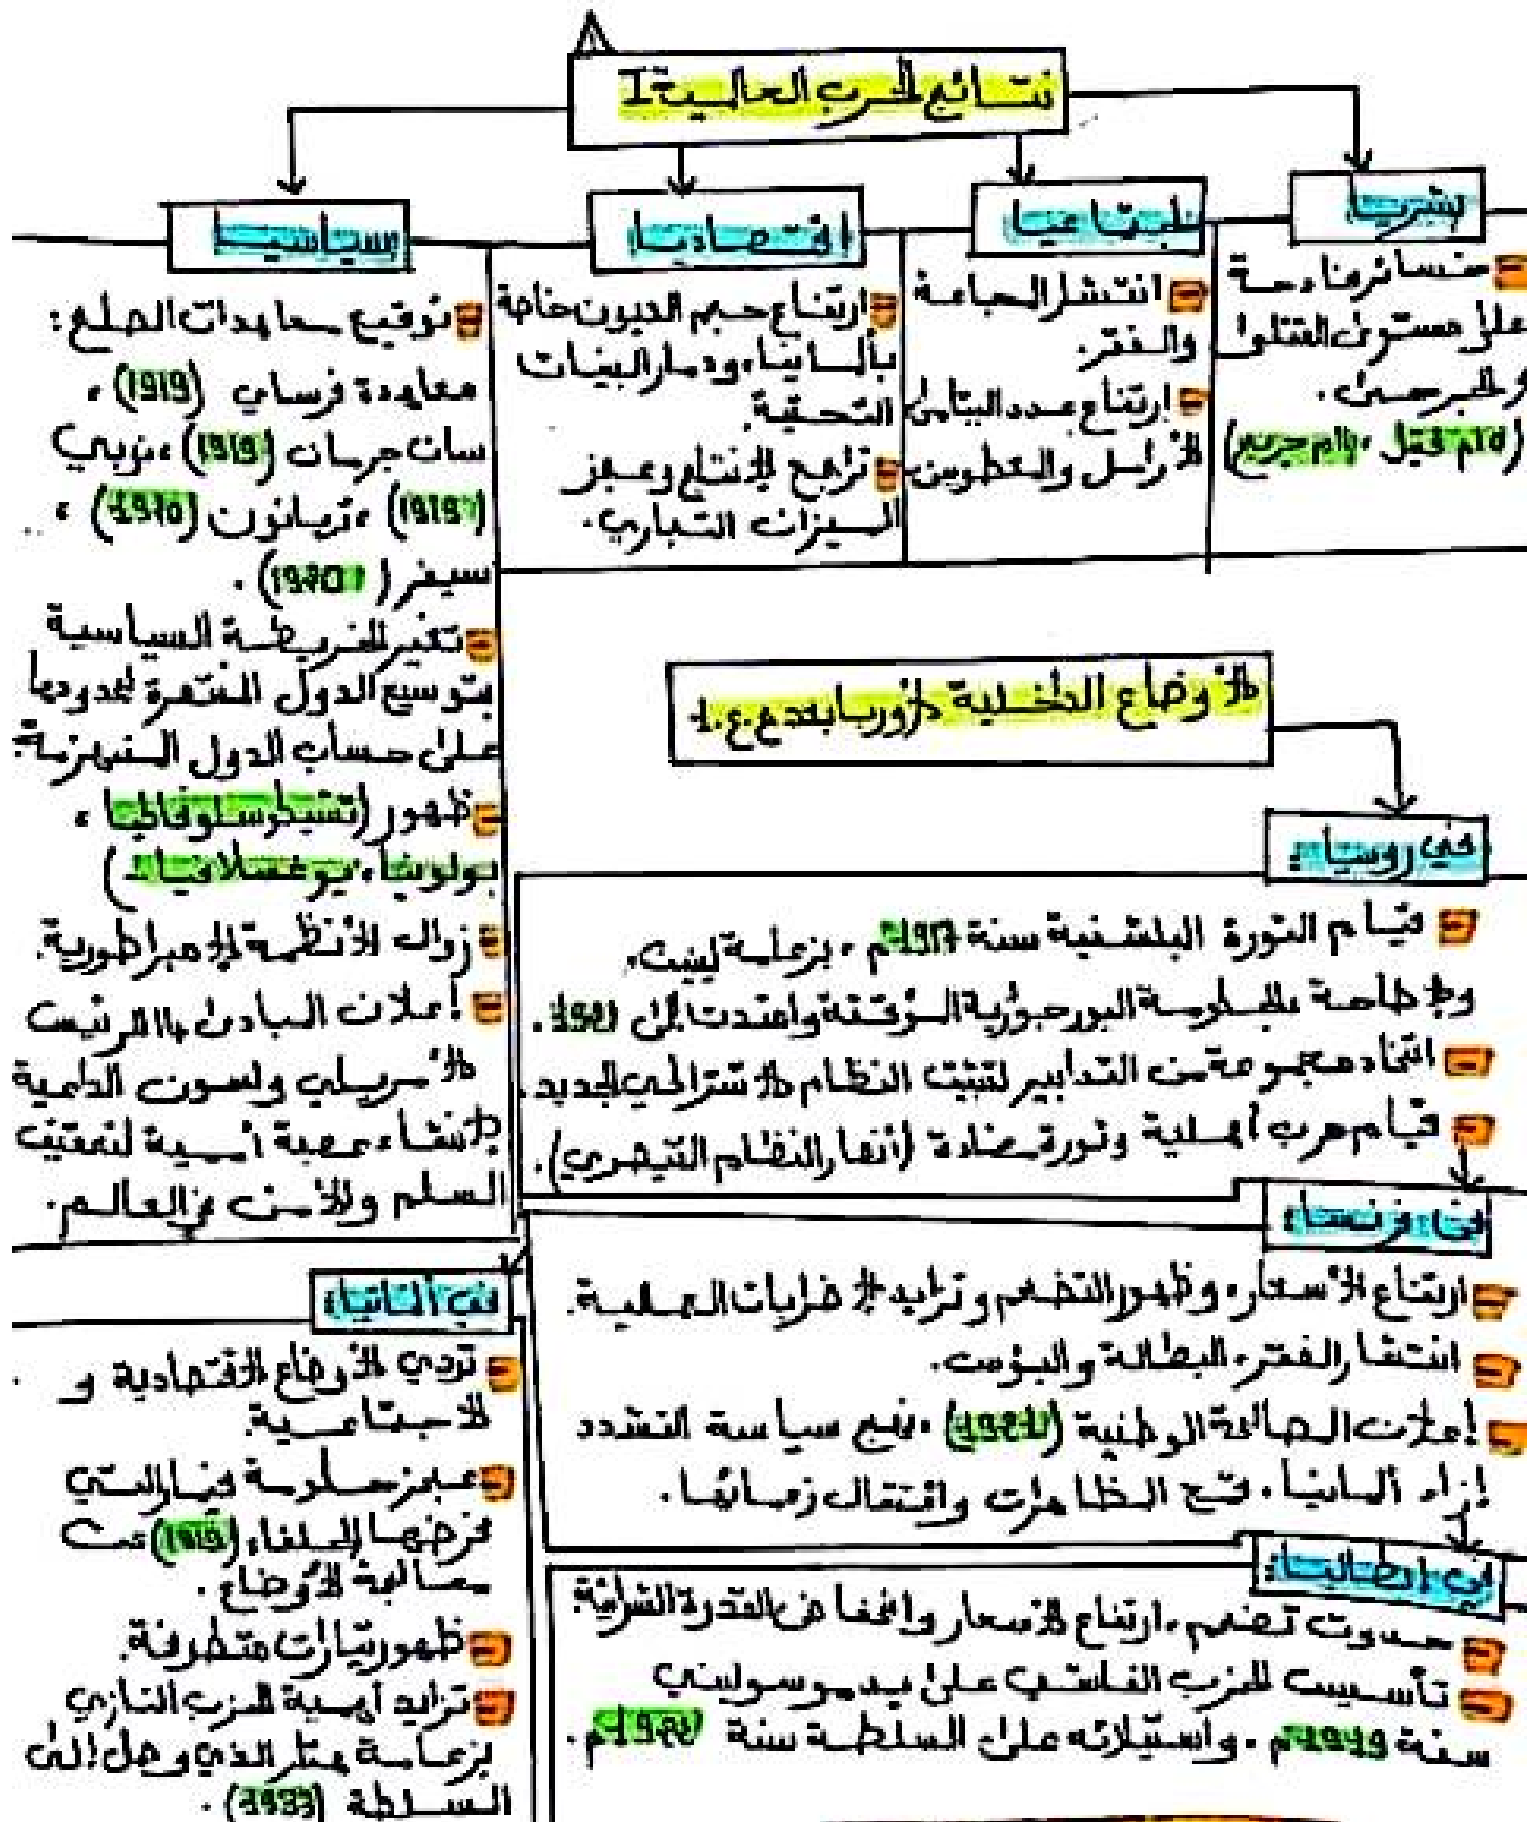 نتائج الحرب العالمية I
بشريا
خسائر فادحة
على مستوى القتلى
والجرحى.
اجتماعيا
انتشار المجاعة
والفقر.
ارتفاع عدد اليتامى
الأرامل والمعطوبين
اقتصاديا
ارتفاع حجم الديون خاصة
بألمانيا، ودمار البنيات
التحتية.
تراجع الإنتاج وعجز
الميزان التجاري.
سياسيا
توقيع معاهدات الصلح:
معاهدة فرساي (1919)،
سان جرمان (1919)، نويي
(1919)، تريانون (1920)،
سيفر (1920).
تغير الخريطة السياسية
بتوسيع الدول المنتصرة لحدودها
على حساب الدول المنهزمة.
ظهور (تشيكوسلوفاكيا،
بولونيا، يوغسلافيا)
زوال الأنظمة الإمبراطورية.
إعلان المبادئ 14 للرئيس
الأمريكي ولسون الداعية
لإنشاء عصبة أممية لتحقيق
السلم والأمن في العالم.
الأوضاع الداخلية لأوربا بعد ح.ع.1
في روسيا:
قيام الثورة البلشفية سنة 1917م، بزعامة لينين،
والإطاحة بالحكومة البورجوازية المؤقتة وامتدت إلى 1921.
اتخاد مجموعة من التدابير لتثبيت النظام الاشتراكي الجديد.
قيام حرب أهلية وثورة مضادة (أنصار النظام القيصري).
في فرنسا:
ارتفاع الأسعار، وظهور التضخم وتزايد الإضرابات العملية.
انتشار الفقر، البطالة والبؤس.
إعلان المصالحة الوطنية نهج سياسة التشدد
إزاء ألمانيا، قمع المظاهرات واعتقال زعمائها.
في إيطاليا:
حدوث تضخم، ارتفاع الأسعار وانخفاض القدرة الشرائية
تأسيس الحزب الفاشي على يد موسوليني
سنة 1919م، واستيلائه على السلطة سنة 1922م.
في ألمانيا:
تردي الأوضاع الاقتصادية و
الاجتماعية.
عجز حكومة فيمار التي
فرضها الحلفاء (1919) عن
معالجة الأوضاع.
ظهور تيارات متطرفة.
تزايد أهمية الحزب النازي
بزعامة هتلر الذي وصل إلى
السلطة (1933).